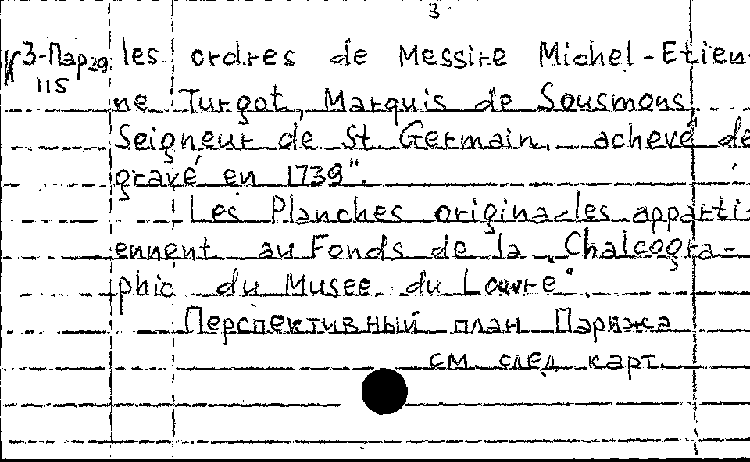 3
К 3-Пар 29 les ordres de Messire Michel-Etien-
115
ne Turgot, Marquis de Sousmons,
Seigneur de St Germain, achevé de
gravé en 1739".
Les Planches originales apparti-
ennent au Fonds de la "Chalcogra-
phie du Musee du Louvre".
Перспективный план Парижа
см след карт